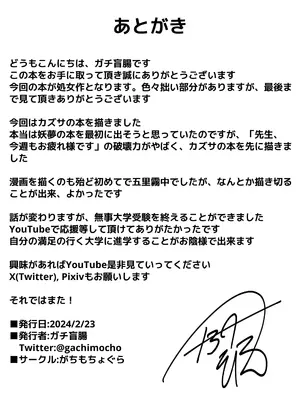 あとがき
どうもこんにちは、ガチ盲腸です
この本をお手に取って頂き誠にありがとうございます
今回の本が処女作となります。色々拙い部分がありますが、最後
まで見て頂きありがとうございます
今回はカズサの本を描きました
本当は妖夢の本を最初に出そうと思っていたのですが、「先生、
今週もお疲れ様です」の破壊力がやばく、カズサの本を先に描きま
した
漫画を描くのも殆ど初めてで五里霧中でしたが、なんとか描き切る
ことが出来、よかったです
話が変わりますが、無事大学受験を終えることができました
YouTubeで応援等して頂けてありがたかったです
自分の満足の行く大学に進学することがお陰様で出来ます
興味があればYouTube是非見ていってください
X(Twitter), Pixivもお願いします
それではまた！
■発行日:2024/2/23
■発行者:ガチ盲腸
Twitter:@gachimocho
■サークル:がちもちょぐら